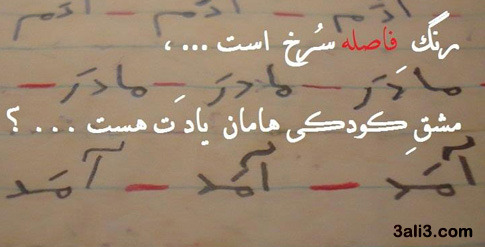 آدَم آدَم آدَم
رنگ فاصله سُرخ است ... ،
مادَر – مادَر – مادَر –
مشقِ کودکی هامان یادَت هست ... ؟
آمَد – آمَد – آمَد
3ali3.com